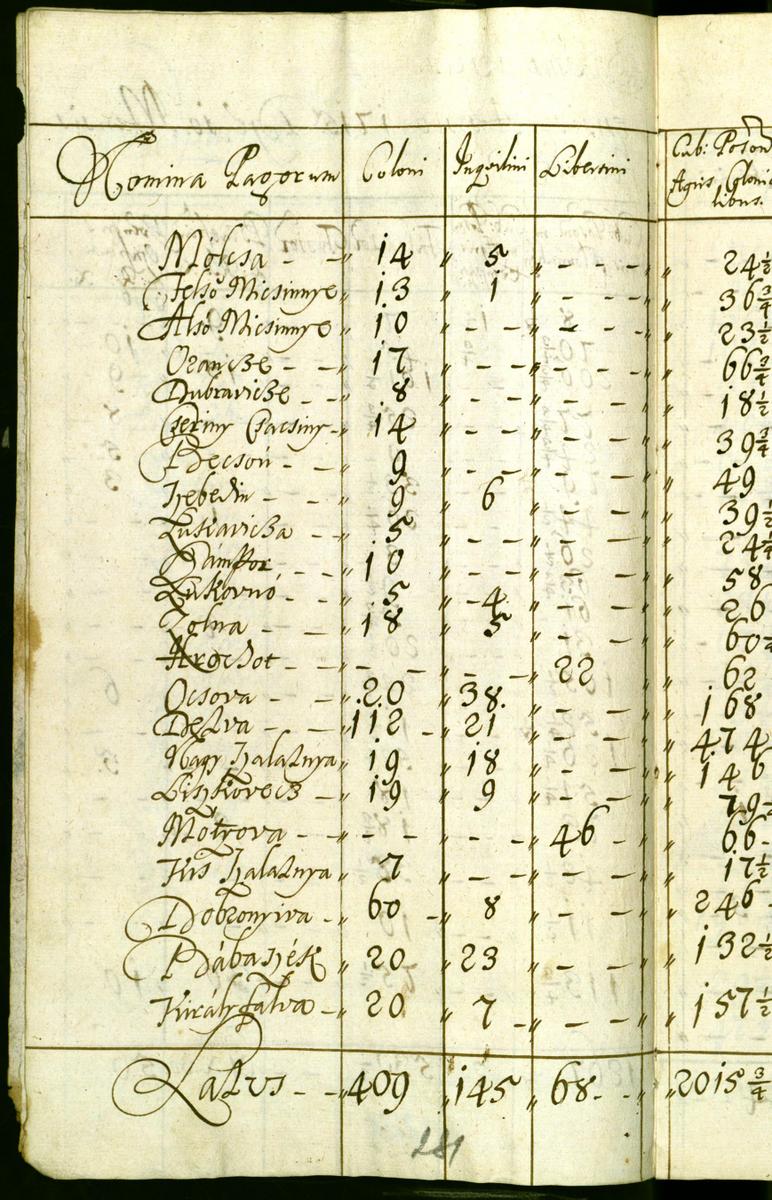 Nomina Pagorum Coloni Inqvilini Libertini Cub: Poson
Agris Coloni
Móləsa 14 5 24 1/2
Felsö Micsinnye 13 1 36 3/4
Alsó Micsinnye 10 23 1/2
Oravicze 17 66 3/4
Dubravicze 8 18 1/2
Cseriny Csacsiny 14 39 3/4
Pécsou 9 49
Hebedin 9 6 39 1/2
Lukavicza 5 24 1/4
Bánffor 10 58
Lukovnó 5 4 26
Zolna 18 5 60
Hrochot 22 62
Ocsova 20 38 168
Detva 112 21 474
Nagy Szalatnya 19 18 146
Liszkovecz 19 9 79
Mótrova 46 66
Kis Szalatnya 7 17 1/2
Dobronyiva 60 8 246
Bábaszék 20 23 132 1/2
Királyfalva 20 7 157 1/2
Latus 409 145 68 2015 3/4
281